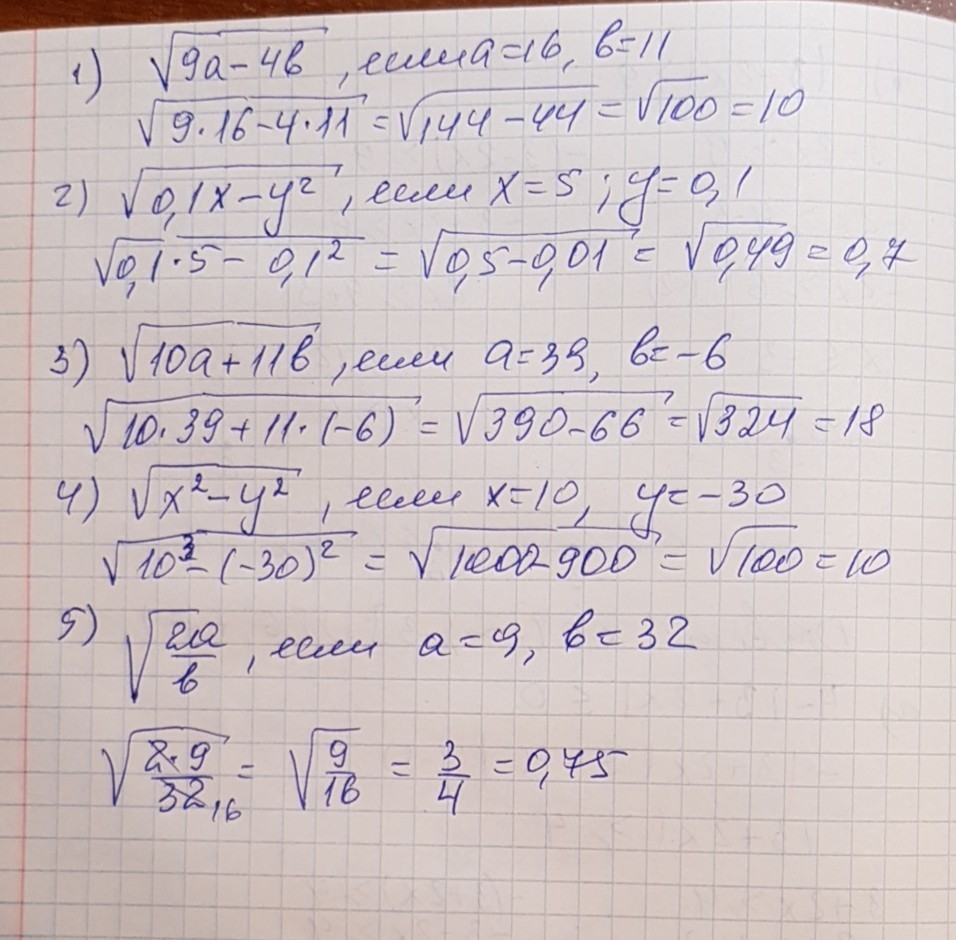 1) √(9a-4b), если a=16, b=11
√(9·16-4·11) = √(144-44) = √100 = 10
2) √(0,1x-y²), если x=5; y=0,1
√(0,1·5-0,1²) = √(0,5-0,01) = √0,49 = 0,7
3) √(10a+11b), если a=39, b=-6
√(10·39+11·(-6)) = √(390-66) = √324 = 18
4) √(x²-y²), если x=10, y=-30
√(10³-(-30)²) = √(1000-900) = √100 = 10
5) √(2a/b), если a=9, b=32
√(2·9/32) 16 = √(9/16) = 3/4 = 0,75